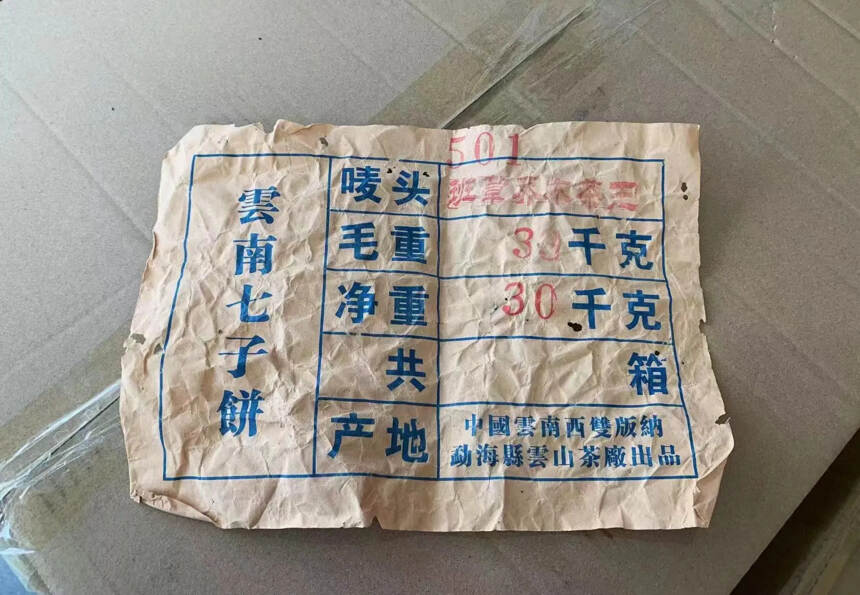 雲南七子餅
501
唛头 班章
毛重 3 千克
净重 30 千克
共 箱
产地 中國雲南西雙版納
勐海縣雲山茶廠出品